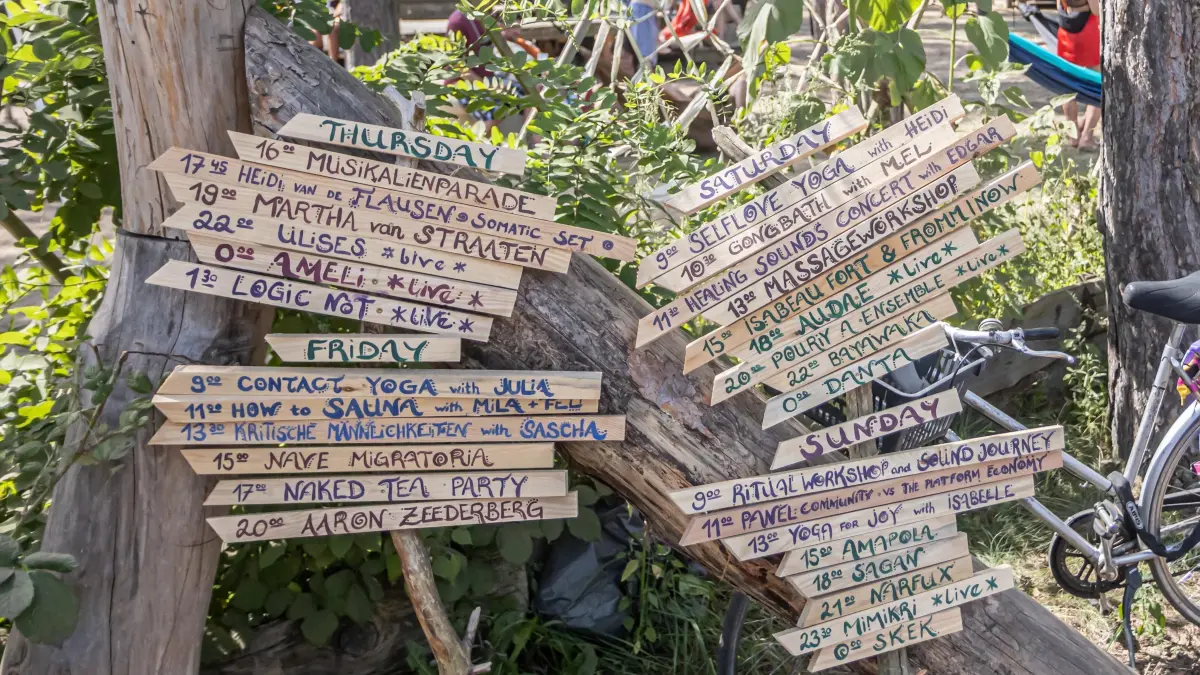 THURSDAY
16⁰⁰ MUSIKALIENPARADE
17⁴⁵ HEIDI VAN DE FLAUSEN • SOMATIC SET •
19⁰⁰ MARTHA van STRAATEN
22⁰⁰ ULISES *live*
0⁰⁰ AMELI • *live*
1³⁰ LOGIC NOT • *live*
FRIDAY
9⁰⁰ CONTACT YOGA with JULIA
11⁰⁰ HOW to SAUNA with MILA + FELI
13³⁰ KRITISCHE MÄNNLICHKEITEN with SASCHA
15⁰⁰ NAVE MIGRATORIA
17⁰⁰ NAKED TEA PARTY
20⁰⁰ AARON ZEEDERBERG
SATURDAY
9⁰⁰ SELFLOVE YOGA with HEIDI
10³⁰ GONGBATH with MEL
11⁰⁰ HEALING SOUNDS CONCERT with EDGAR
13⁰⁰ MASSAGEWORKSHOP
15⁰⁰ ISABEAU FORT & FROMM NOW
18⁰⁰ AUDAE *live*
20⁰⁰ POURIY A ENSEMBLE *live*
22⁰⁰ BAYAWAKA
0⁰⁰ DANTA
SUNDAY
9⁰⁰ RITUAL WORKSHOP and SOUND JOURNEY
11⁰⁰ PANEL: COMMUNITY • VS THE PLATFORM ECONOMY
13⁰⁰ YOGA FOR JOY with ISABELLE
15⁰⁰ AMAPOLA
18⁰⁰ SAGAN
21⁰⁰ NARFUX
23³⁰ MIMIKRI *live*
0⁰⁰ SKEK